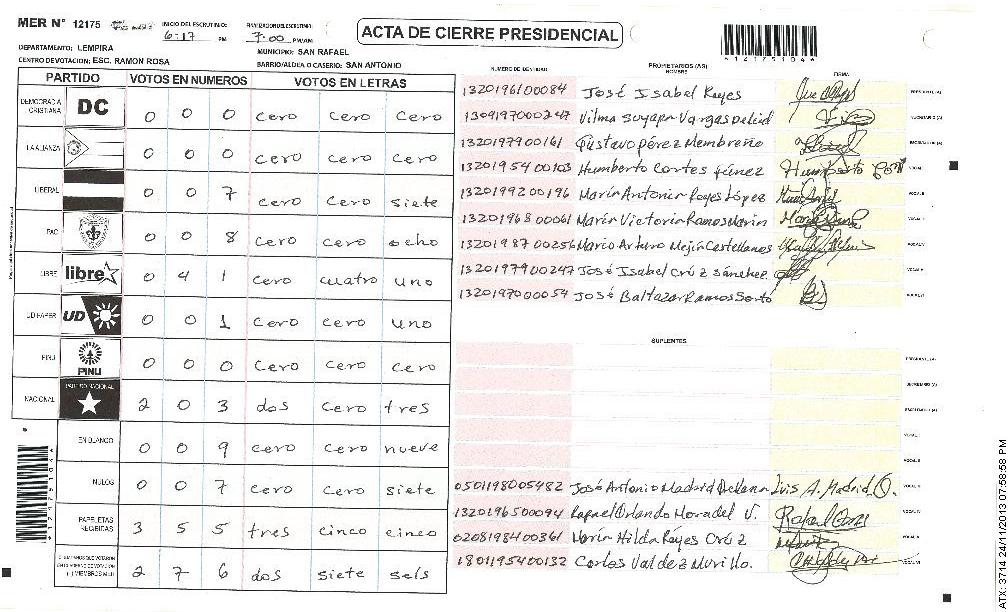 MER N° 12175 INICIO DEL ESCRUTINIO: 6:17 PM 7:00 PM/AM
ACTA DE CIERRE PRESIDENCIAL
*12175104*
DEPARTAMENTO: LEMPIRA MUNICIPIO: SAN RAFAEL
CENTRO DE VOTACION: ESC. RAMON ROSA BARRIO/ALDEA O CASERIO: SAN ANTONIO
PARTIDO VOTOS EN NUMEROS VOTOS EN LETRAS
DEMOCRACIA CRISTIANA DC 0 0 0 cero cero cero
LA ALIANZA 0 0 0 cero cero cero
LIBERAL 0 0 7 cero cero siete
PAC 0 0 8 cero cero ocho
LIBRE libre 0 4 1 cero cuatro uno
UD FAPER UD 0 0 1 cero cero uno
PINU PINU 0 0 0 cero cero cero
NACIONAL PARTIDO NACIONAL 2 0 3 dos cero tres
EN BLANCO 0 0 9 cero cero nueve
NULOS 0 0 7 cero cero siete
PAPELETAS RECIBIDAS 3 5 5 tres cinco cinco
2 7 6 dos siete seis
*12175104*
NUMERO DE IDENTIDAD PROPIETARIOS (AS) NOMBRE FIRMA
1320196100084 José Isabel Reyes
1309197000247 Vilma Suyapa Vargas
1320197900161 Gustavo pérez Membreño
1320195400103 Humberto Cortes Humberto
1320199200196 María Antonia Reyes López
1320196800061 María Victoria Ramos Marin
1320198700256 Mario Arturo Mejía Castellanos
1320197900247 José Isabel Crúz Sánchez
1320197000054 José Baltazar Ramos Sorto
SUPLENTES
0501198005482 José Antonio Madrid Orellana Luis A. Madrid O.
1320196500094 Rafael Orlando Moradel V. Rafael
0208198400361 María Hilda Reyes Crúz
1801195400132 Carlos Valdez Murillo.
ATX: 3714 24/11/2013 07:58:58 PM